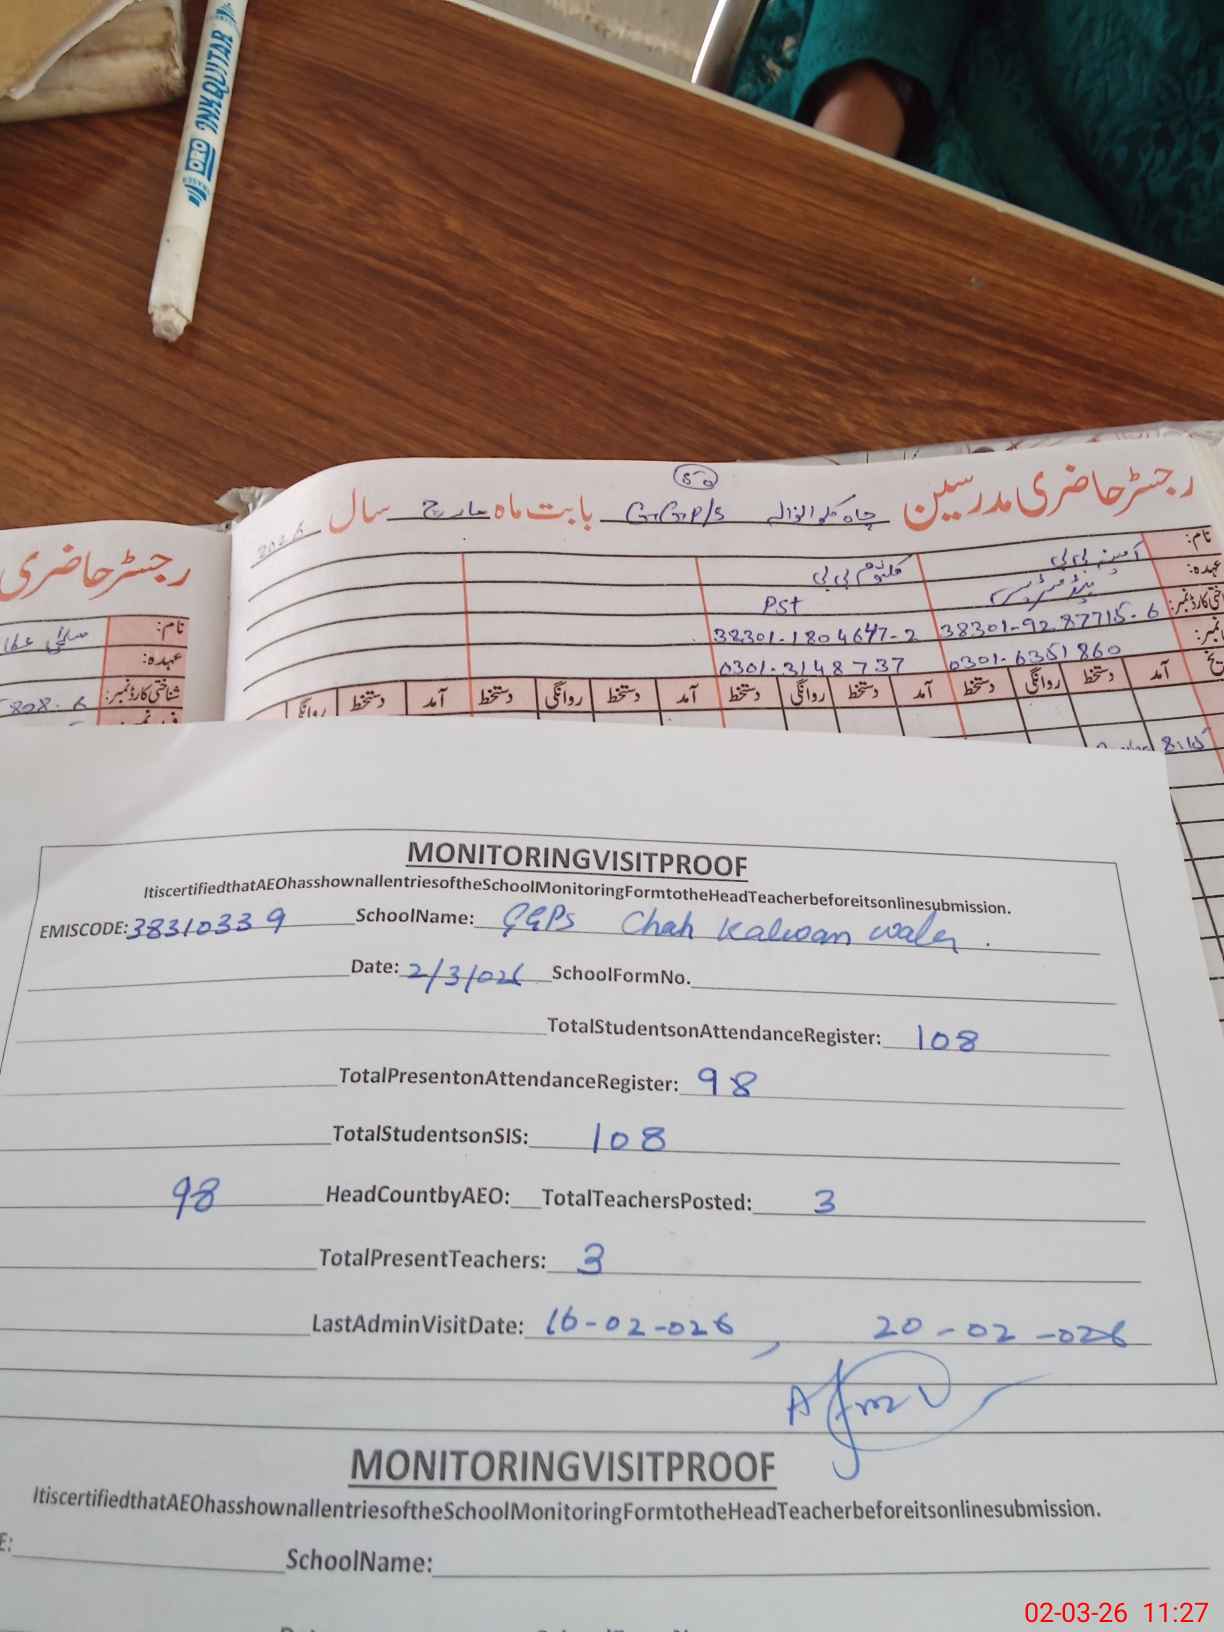 ORO INKQUITAR
50
رجسٹر حاضری مدرسین چاہ کلوانوالہ GGP/S بابت ماہ مارچ سال 2026
نام: آمنہ بی بی کلثوم بی بی
عہدہ: ہیڈ مسٹریس PST
شناختی کارڈ نمبر: 38301-9287715-6 38301-1804647-2
0301-6351860 0301-3148737
آمد دستخط روانگی دستخط آمد دستخط روانگی دستخط آمد دستخط روانگی دستخط آمد دستخط روانگی
8:15
رجسٹر حاضری
نام: سلمٰی عطا
عہدہ:
شناختی کارڈ نمبر: 808-6
MONITORINGVISITPROOF
ItiscertifiedthatAEOhasshownallentriesoftheSchoolMonitoringFormtotheHeadTeacherbeforeitsonlinesubmission.
EMISCODE: 38310339 SchoolName: GGPS Chah Kalwan wala.
Date: 2/3/026 SchoolFormNo.
TotalStudentsonAttendanceRegister: 108
TotalPresentonAttendanceRegister: 98
TotalStudentsonSIS: 108
98 HeadCountbyAEO: TotalTeachersPosted: 3
TotalPresentTeachers: 3
LastAdminVisitDate: 16-02-026, 20-02-026
MONITORINGVISITPROOF
ItiscertifiedthatAEOhasshownallentriesoftheSchoolMonitoringFormtotheHeadTeacherbeforeitsonlinesubmission.
E: SchoolName:
02-03-26 11:27